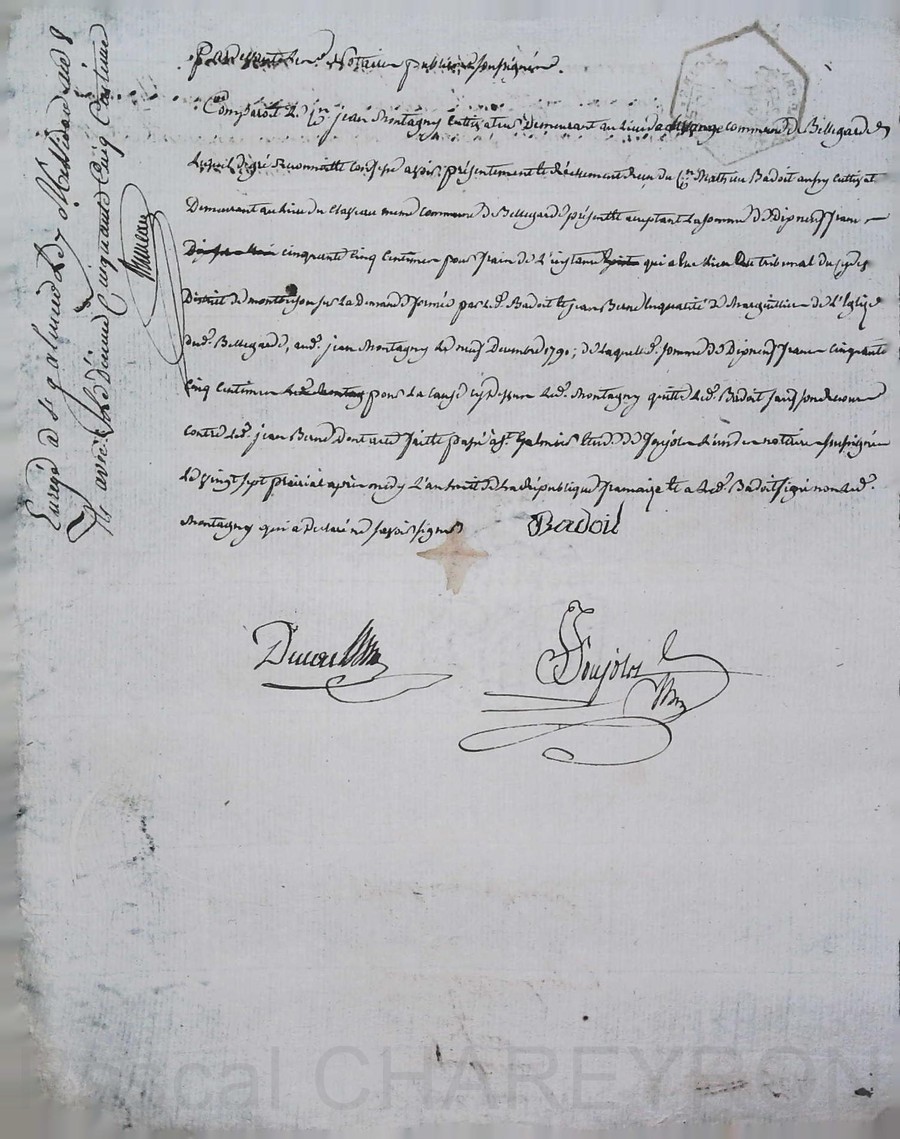 Par devant les nres. Notaires publics soussignés.
Comparoit le Cen. jean Montagny cultivateur demeurant au lieu de commune de Bellegarde
lequel de gré reconnoitte confesse avoir présentement et réellement reçu du Cen. Mathieu Badoit aussy cultivat
Demeurant au lieu du Classeau meme commune de Bellegarde présent et acceptant la somme de dixneuf franc
cinquante cinq centimes pour frais de l'instance qui a eu lieu au tribunal du cydev
District de montbrison sur la demande formée par led. Badoit et jean Berne en qualité de Marguillier de l'Eglize
dud. Bellegarde, aud. jean Montagny le neuf Decembre 1790; de laquelle d. somme de Dixneuf franc cinquante
cinq centimes pour la cause cy dessus led. Montagny quitte led. Badoit sauf son recours
contre led. jean Berne dont acte faitte passé à St. Galmier étude de Soujolz l'un des notaires soussignés
le vingt sept prairial après midy l'an huit de la république francaize et a led. Badoit signé non led.
Montagny qui a déclaré ne savoir signer Badoit
Soujolz
Enregé à St. galmier le 27 Mesidor an 8
avec le décime cinquante cinq Centimes
Pascal CHAREYRON